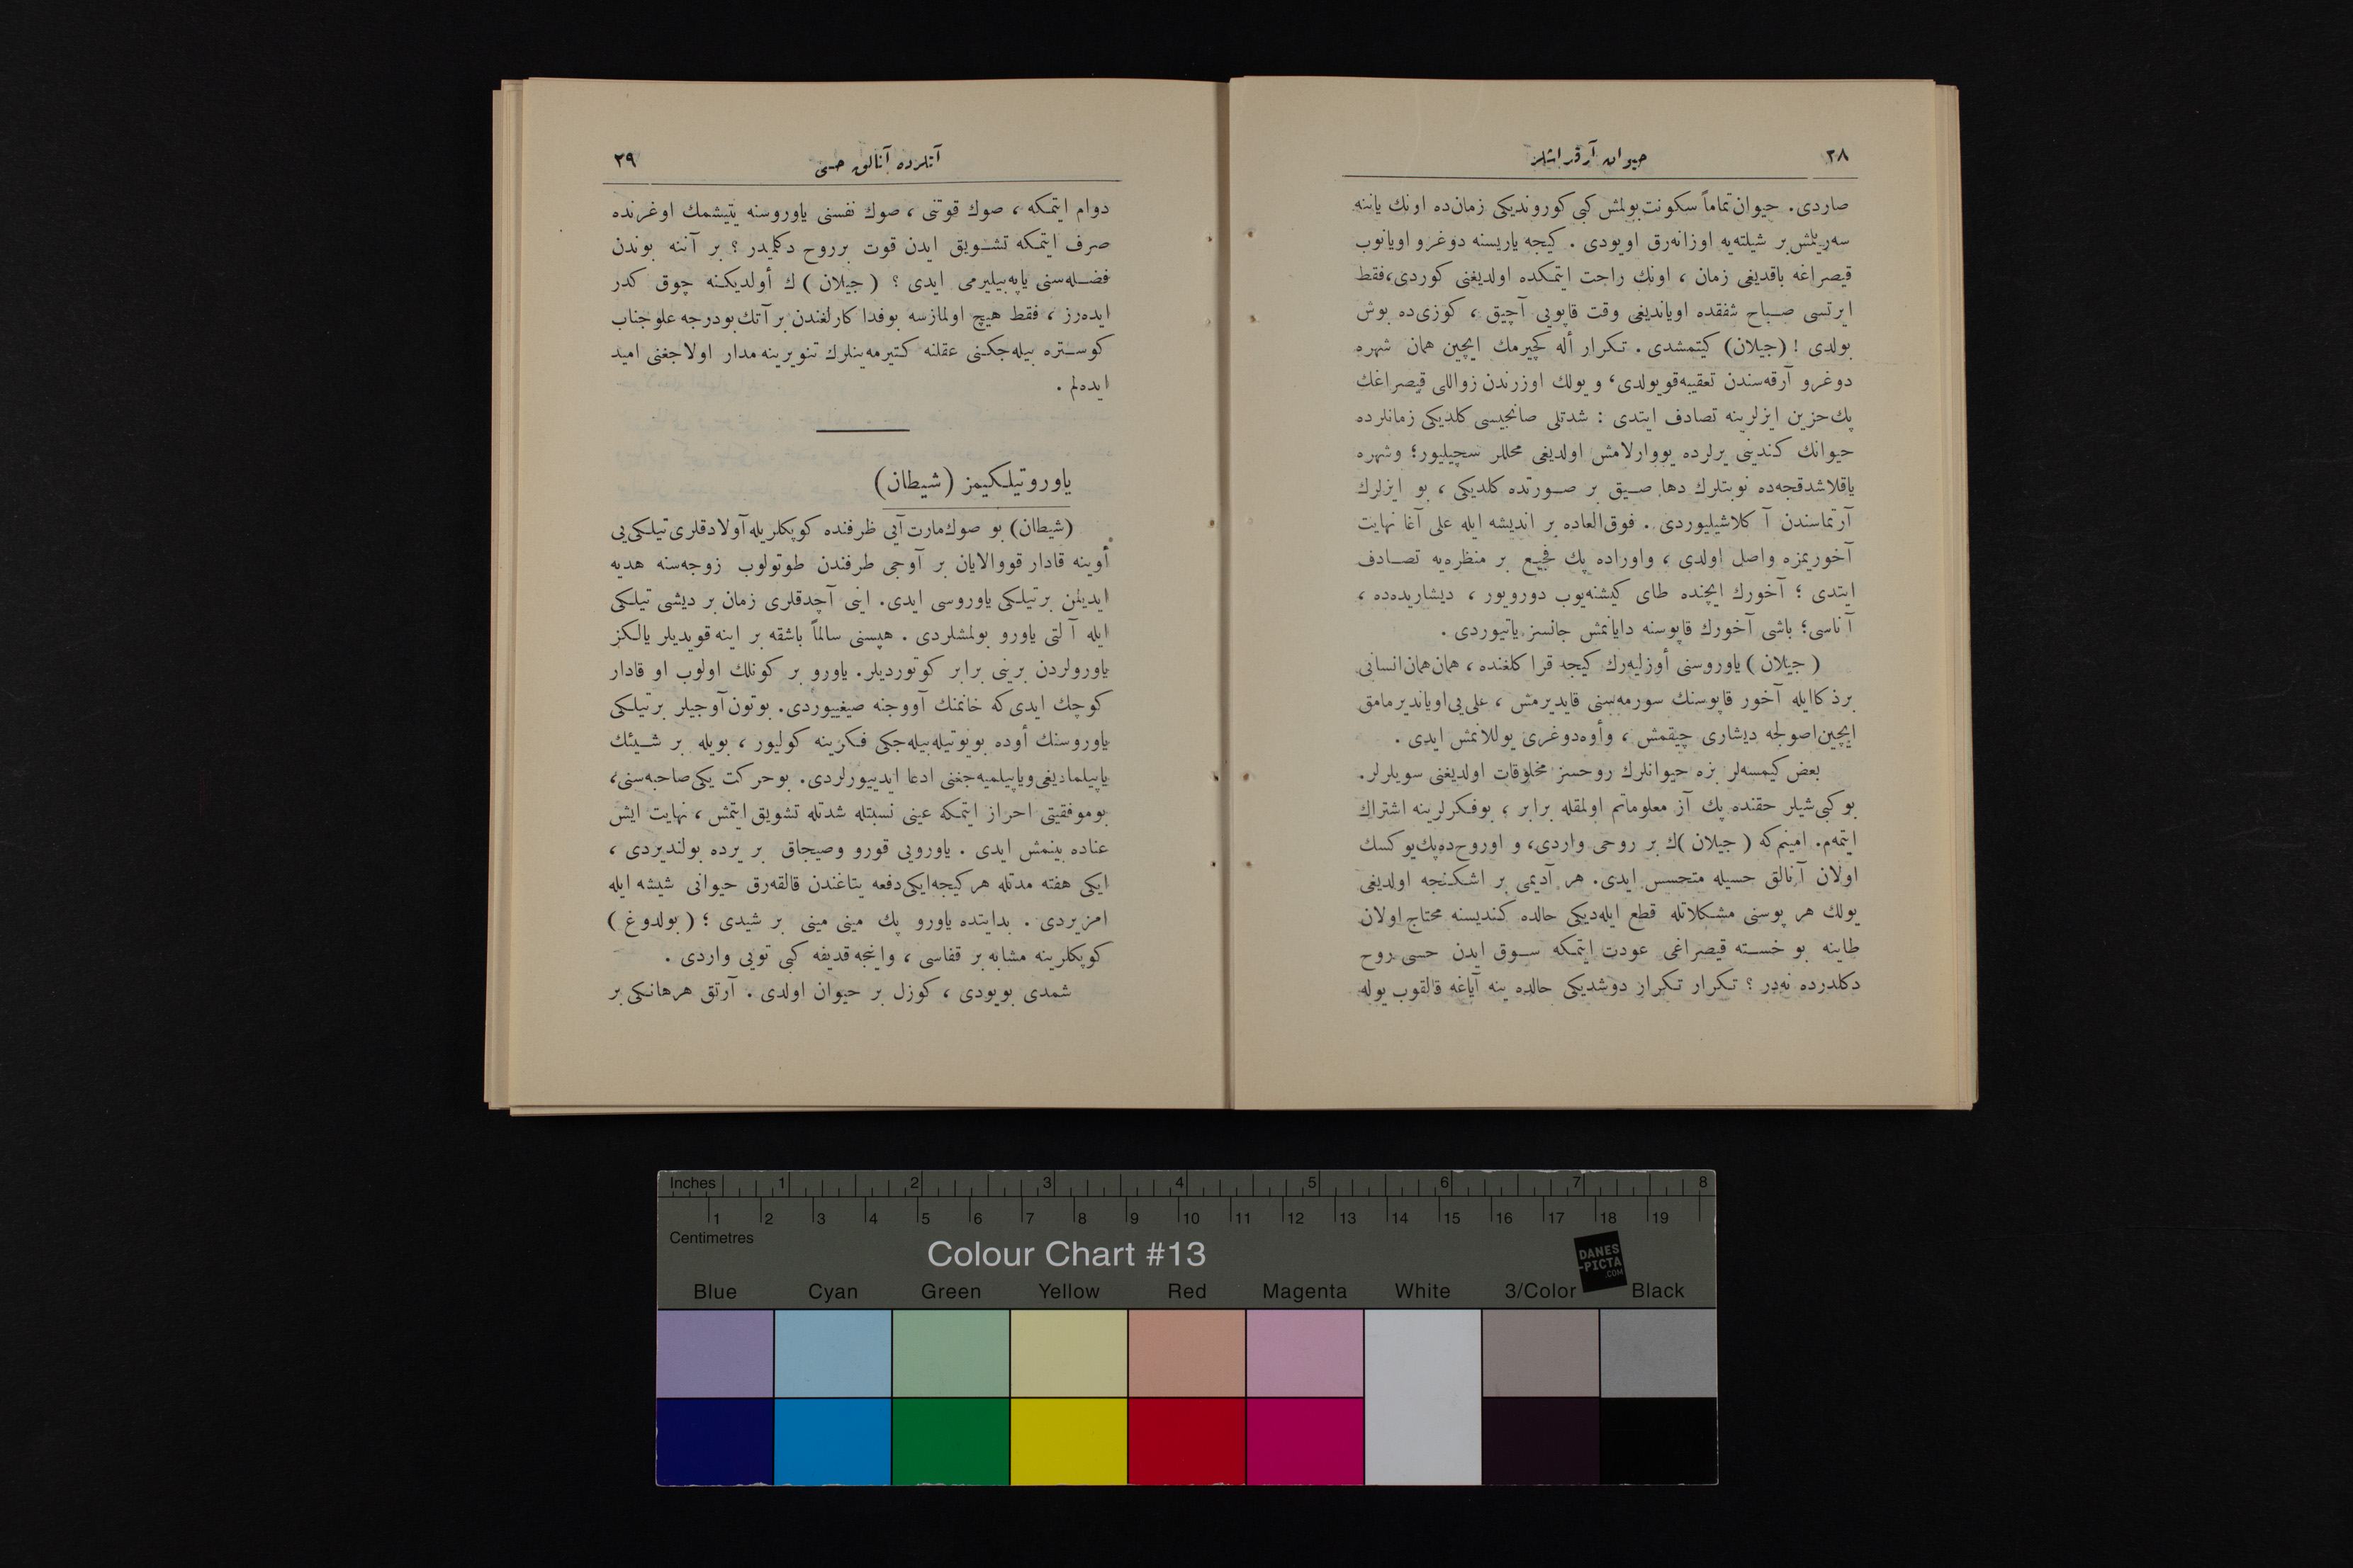 ٢٨
حيوان آرقداشلر
صاردى. حيوان تماماً سكونت بولمش كبى كورونديكى زمان‌ده اونك ياننه
سه‌ريلمش بر شيلته‌يه اوزانه‌رق اويودى . كيجه ياريسنه دوغرو اويانوب
قيصراغه باقديغى زمان ، اونك راحت ايتمكده اولديغنى كوردى،فقط
ايرتسى صباح شفقده اويانديغى وقت قاپويى آچيق ، كوزى‌ده بوش
بولدى ! (جيلان) كيتمشدى . تكرار أله كچيرمك ايچين همان شهره
دوغرو آرقه‌سندن تعقيبه‌قويولدى، و يولك اوزرندن زواللى قيصراغك
پك‌حزين ايزلرينه تصادف ايتدى : شدتلى صانجيسى كلديكى زمانلرده
حيوانك كندينى يرلرده يووارلامش اولديغى محللر سچيليور؛ وشهره
ياقلاشدقجه‌ده نوبتلرك دها صيق بر صورتده كلديكى ، بو ايزلرك
آرتماسندن آ كلاشيليوردى . فوق‌العاده بر انديشه ايله على آغا نهايت
آخوريمزه واصل اولدى ، واوراده پك فجيع بر منظره‌يه تصادف
ايتدى ؛ آخورك ايچنده طاى كيشنه‌يوب دورويور ، ديشاريده‌ده ،
آناسى؛ باشى آخورك قاپوسنه دايانمش جانسز ياتيوردى .
( جيلان ) ياوروسنى أوزليه‌رك كيجه قرا كلغنده ، همان‌همان‌انسانى
برذكاايله آخور قاپوسنك سورمه‌سنى قايديرمش ، على‌يى‌اوياندیرمامق
ايچين‌اصولجه ديشارى چيقمش ، وأوه‌دوغرى يوللانمش ايدى .
بعض كيمسه‌لر بزه حيوانلرك روحسز مخلوقات اولديغنى سويلرلر.
بو كبى‌شيلر حقنده پك آز معلوماتم اولمقله برابر ، بوفكرلرينه اشتراك
ايتمه‌م. امينم‌كه ( جيلان )ك بر روحى واردى، و اوروح‌ده‌پك‌يوكسك
اولان آنالق حسيله متحسس ايدى. هر آديمى بر اشكنجه اولديغى
يولك هر پوسنى مشكلاتله قطع ايله‌ديكى حالده كنديسنه محتاج اولان
طاينه بو خسته قيصراغى عودت ايتمكه سوق ايدن حسى روح
دكلدرده نه‌در ؟ تكرار تكرار دوشديكى حالده ينه آياغه قالقوب يوله
آتلرده آنالق حسى
٢٩
دوام ايتمكه ، صوك قوتنى ، صوك نفسنى ياوروسنه يتيشمك اوغرنده
صرف ايتمكه تشويق ايدن قوت برروح دكلميدر ؟ بر آننه بوندن
فضله‌سنى ياپه‌بيليرمى ايدى ؟ ( جيلان ) ك أولديكنه چوق كدر
ايده‌رز ، فقط هيچ اولمازسه بوفدا كارلغندن بر آتك بودرجه علوجناب
كوستره بيله‌جكنى عقلنه كتيرمه‌ينلرك تنويرينه مدار اولاجغنى اميد
ايده‌لم .
ياوروتيلكيمز (شيطان)
(شيطان) بو صوك‌مارت‌آيى ظرفنده كوپكلريله‌آولادقلرى‌تيلكى‌يى
أوينه قادار قووالايان بر آوجى طرفندن طوتولوب زوجه‌سنه هديه
ايديلن برتيلكى ياوروسى ايدى. اينى آچدقلرى زمان بر ديشى تيلكى
ايله آلتى ياورو بولمشلردى . هپسنى سالماً باشقه بر اينه قويديلر يالكز
ياورولردن برينى برابر كوتورديلر. ياورو بر كونلك اولوب او قادار
كوچك ايدى‌كه خانمنك آووجنه صيغييوردى. بوتون‌آوجيلر برتيلكى
ياوروسنك أوده بويوتيله‌بيله‌جكى فكرينه كوليور ، بويله بر شيئك
ياپيلماديغى‌وياپيلميه‌جغنى ادعا ايدييورلردى. بوحركت يكى‌صاحبه‌سنى،
بوموفقيتى احراز ايتمكه عينى نسبتله شدتله تشويق ايتمش ، نهايت ايش
عناده بينمش ايدى . ياورويى قورو وصيجاق بر يرده بولنديردى ،
ايكى هفته مدتله هركيجه‌ايكى‌دفعه يتاغندن قالقه‌رق حيوانى شيشه ايله
امزيردى . بدايتده ياورو پك مينى مينى بر شيدى ؛ ( بولدوغ )
كوپكلرينه مشابه بر قفاسى ، وانجه‌قديفه كبى تويى واردى .
شمدى بويودى ، كوزل بر حيوان اولدى . آرتق هرهانكى بر
Inches 1 2 3 4 5 6 7 8
1 2 3 4 5 6 7 8 9 10 11 12 13 14 15 16 17 18 19
Centimetres
Colour Chart #13
DANES
-PICTA
.COM
Blue Cyan Green Yellow Red Magenta White 3/Color Black